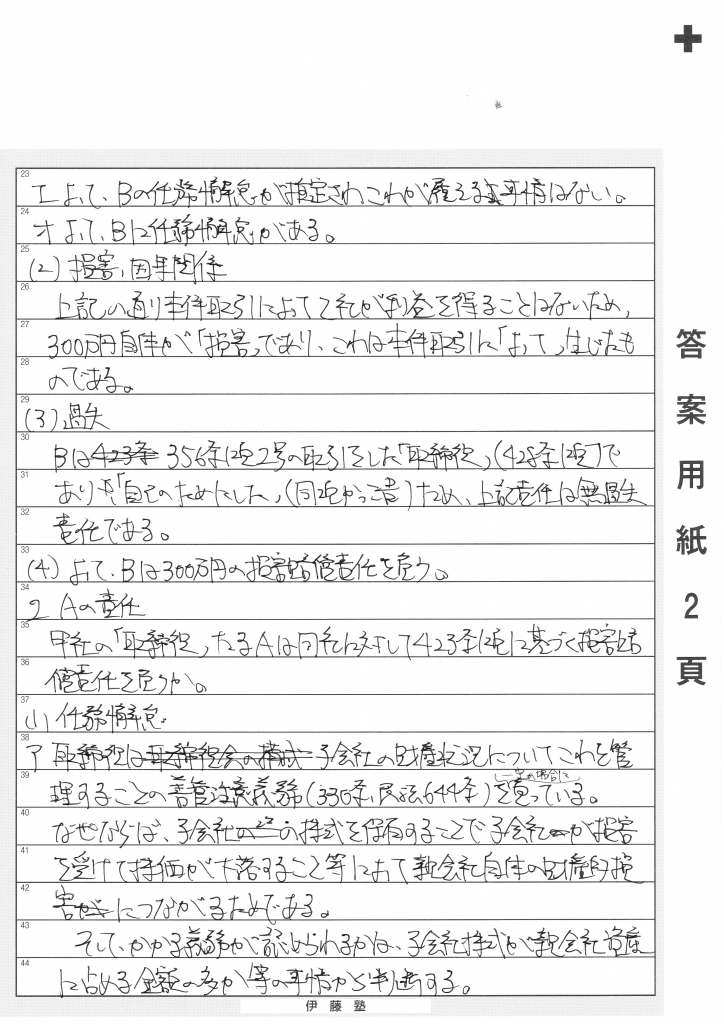 答案用紙2頁
23
エ よって、Bの任務懈怠が推定されこれが覆える事情はない。
24
オ よって、Bに任務懈怠がある。
25
(2) 損害、因果関係
26
上記の通り本件取引によって乙社が利益を得ることはないため、
27
300万円自体が「損害」であり、これは本件取引に「よって」生じたも
28
のである。
29
(3) 過失
30
Bは423条 356条1項2号の取引をした「取締役」(428条1項)で
31
あり「自己のためにした」(同項かっこ書)ため、上記責任は無過失
32
責任である。
33
(4) よって、Bは300万円の損害賠償責任を負う。
34
2 Aの責任
35
甲社の「取締役」たるAは同社に対して423条1項に基づく損害賠
36
償責任を負うか。
37
(1) 任務懈怠
38
ア 取締役は取締役会の構成 子会社の財産状況についてこれを管
39
理することの善管注意義務(330条、民法644条)を一定の場合に負っている。
40
なぜならば、子会社の株式を保有することで子会社が損害
41
を受けて株価が下落すること等によって親会社自体の財産的損
42
害につながるためである。
43
そして、かかる義務が認められるかは、子会社株式が親会社資産
44
に占める金額の多か等の事情から判断する。
伊藤塾